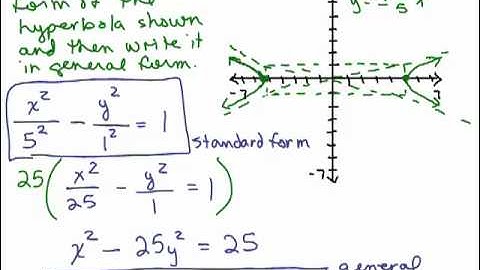 form of the
hyperbola shown
and then write it
in general form.
y = ± /5 x
-7
7
-7
x²/5² - y²/1² = 1
standard form
25 ( x²/25 - y²/1 = 1 )
x² - 25y² = 25
general